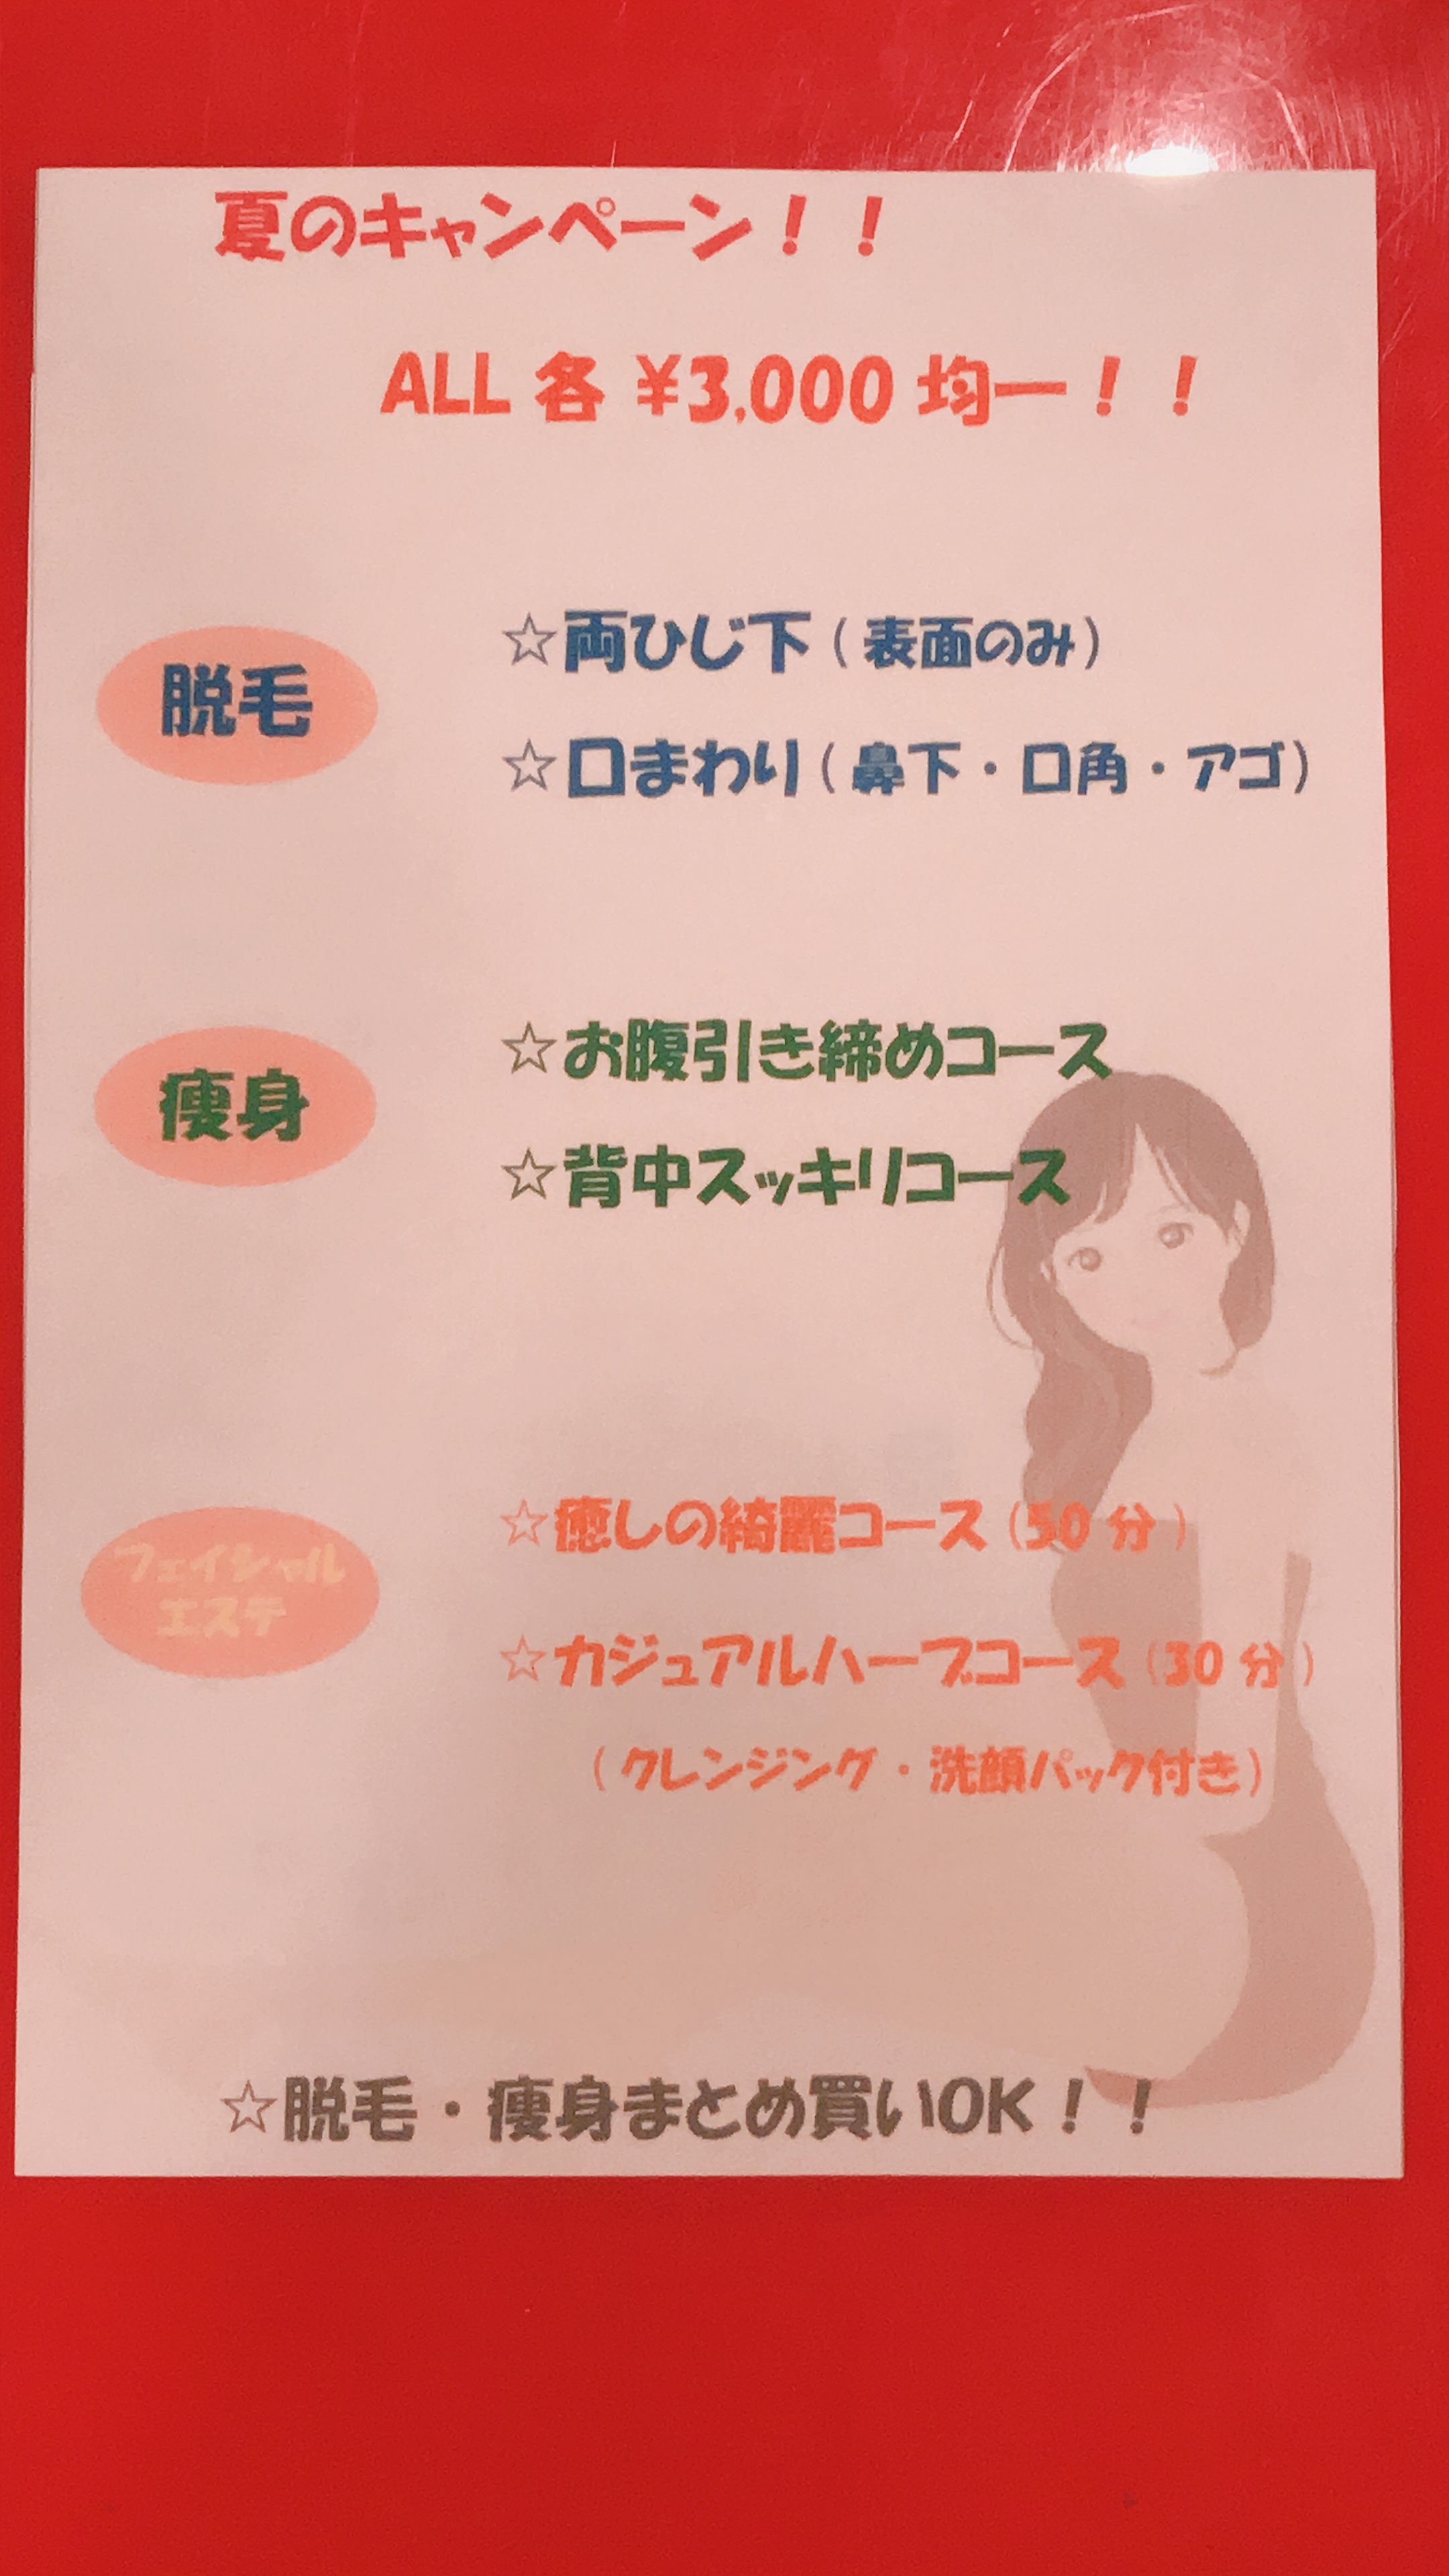 夏のキャンペーン！！
ALL 各 ¥3,000 均一！！
脱毛
☆両ひじ下(表面のみ)
☆口まわり(鼻下・口角・アゴ)
痩身
☆お腹引き締めコース
☆背中スッキリコース
フェイシャル
エステ
☆癒しの綺麗コース(50分)
☆カジュアルハーブコース(30分)
(クレンジング・洗顔パック付き)
☆脱毛・痩身まとめ買いOK！！